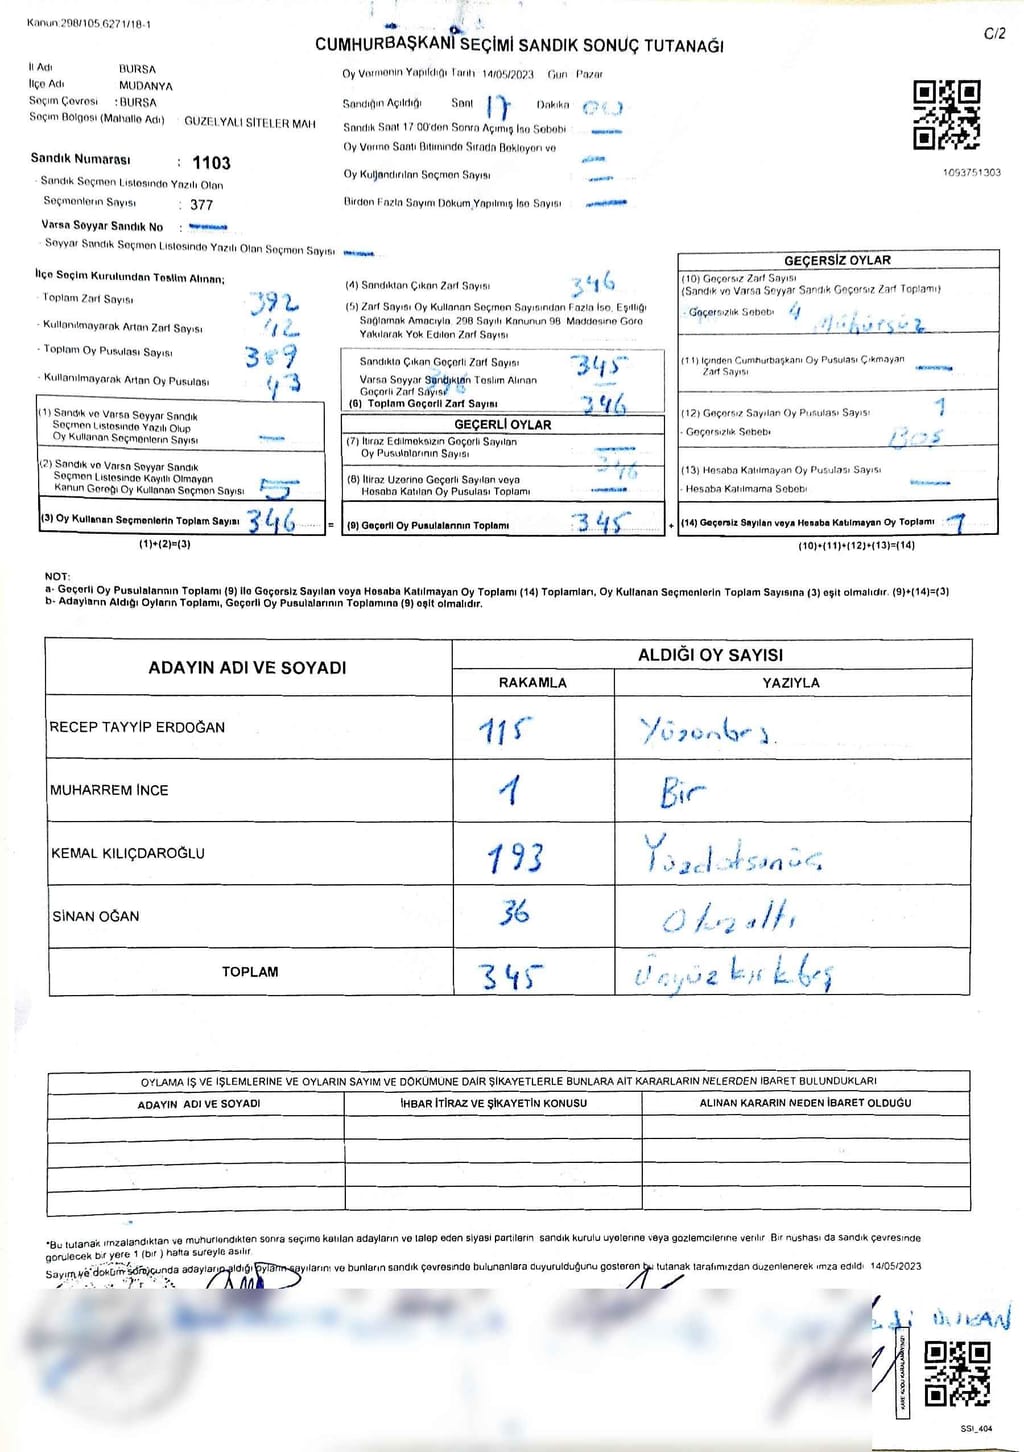 Kanun 298/105 6271/18-1
C/2
CUMHURBAŞKANI SEÇİMİ SANDIK SONUÇ TUTANAĞI
İl Adı BURSA
İlçe Adı MUDANYA
Seçim Çevresi : BURSA
Seçim Bölgesi (Mahalle Adı) GÜZELYALI SİTELER MAH
Sandık Numarası : 1103
- Sandık Seçmen Listesinde Yazılı Olan
Seçmenlerin Sayısı : 377
Varsa Seyyar Sandık No :
- Seyyar Sandık Seçmen Listesinde Yazılı Olan Seçmen Sayısı
Oy Vermenin Yapıldığı Tarih 14/05/2023 Gün Pazar
Sandığın Açıldığı Saat 17 Dakika 00
Sandık Saat 17 00'den Sonra Açılmış İse Sebebi
Oy Verme Saati Bitiminde Sırada Bekleyen ve
Oy Kullandırılan Seçmen Sayısı
Birden Fazla Sayım Döküm Yapılmış İse Sayısı
1093751303
İlçe Seçim Kurulundan Teslim Alınan;
- Toplam Zarf Sayısı 392
- Kullanılmayarak Artan Zarf Sayısı 42
- Toplam Oy Pusulası Sayısı 389
- Kullanılmayarak Artan Oy Pusulası 43
(1) Sandık ve Varsa Seyyar Sandık
Seçmen Listesinde Yazılı Olup
Oy Kullanan Seçmenlerin Sayısı
(2) Sandık ve Varsa Seyyar Sandık
Seçmen Listesinde Kayıtlı Olmayan
Kanun Gereği Oy Kullanan Seçmen Sayısı
(3) Oy Kullanan Seçmenlerin Toplam Sayısı 346 =
(1)+(2)=(3)
(4) Sandıktan Çıkan Zarf Sayısı 346
(5) Zarf Sayısı Oy Kullanan Seçmen Sayısından Fazla İse, Eşitliği
Sağlamak Amacıyla 298 Sayılı Kanunun 98 Maddesine Göre
Yakılarak Yok Edilen Zarf Sayısı
Sandıkta Çıkan Geçerli Zarf Sayısı 345
Varsa Seyyar Sandıktan Teslim Alınan
Geçerli Zarf Sayısı
(6) Toplam Geçerli Zarf Sayısı 346
GEÇERLİ OYLAR
(7) İtiraz Edilmeksizin Geçerli Sayılan
Oy Pusulalarının Sayısı 346
(8) İtiraz Üzerine Geçerli Sayılan veya
Hesaba Katılan Oy Pusulası Toplamı
(9) Geçerli Oy Pusulalarının Toplamı 345 +
GEÇERSİZ OYLAR
(10) Geçersiz Zarf Sayısı
(Sandık ve Varsa Seyyar Sandık Geçersiz Zarf Toplamı)
- Geçersizlik Sebebi Mühürsüz
(11) İçinden Cumhurbaşkanı Oy Pusulası Çıkmayan
Zarf Sayısı
(12) Geçersiz Sayılan Oy Pusulası Sayısı 1
- Geçersizlik Sebebi BOŞ
(13) Hesaba Katılmayan Oy Pusulası Sayısı
- Hesaba Katılmama Sebebi
(14) Geçersiz Sayılan veya Hesaba Katılmayan Oy Toplamı 1
(10)+(11)+(12)+(13)=(14)
NOT:
a- Geçerli Oy Pusulalarının Toplamı (9) İle Geçersiz Sayılan veya Hesaba Katılmayan Oy Toplamı (14) Toplamları, Oy Kullanan Seçmenlerin Toplam Sayısına (3) eşit olmalıdır. (9)+(14)=(3)
b- Adayların Aldığı Oyların Toplamı, Geçerli Oy Pusulalarının Toplamına (9) eşit olmalıdır.
ADAYIN ADI VE SOYADI ALDIĞI OY SAYISI
RAKAMLA YAZIYLA
RECEP TAYYİP ERDOĞAN 115 Yüzonbeş
MUHARREM İNCE 1 Bir
KEMAL KILIÇDAROĞLU 193
SİNAN OĞAN 36 Otuzaltı
TOPLAM 345 Üçyüzkırkbeş
OYLAMA İŞ VE İŞLEMLERİNE VE OYLARIN SAYIM VE DÖKÜMÜNE DAİR ŞİKAYETLERLE BUNLARA AİT KARARLARIN NELERDEN İBARET BULUNDUKLARI
ADAYIN ADI VE SOYADI İHBAR İTİRAZ VE ŞİKAYETİN KONUSU ALINAN KARARIN NEDEN İBARET OLDUĞU
*Bu tutanak imzalandıktan ve mühürlendikten sonra seçime katılan adayların ve talep eden siyasi partilerin sandık kurulu üyelerine veya gözlemcilerine verilir Bir nüshası da sandık çevresinde
görülecek bir yere 1 (bir) hafta süreyle asılır
Sayım ve döküm sonucunda adayların aldığı oyların sayılarını ve bunların sandık çevresinde bulunanlara duyurulduğunu gösteren bu tutanak tarafımızdan düzenlenerek imza edildi 14/05/2023
SSI_404